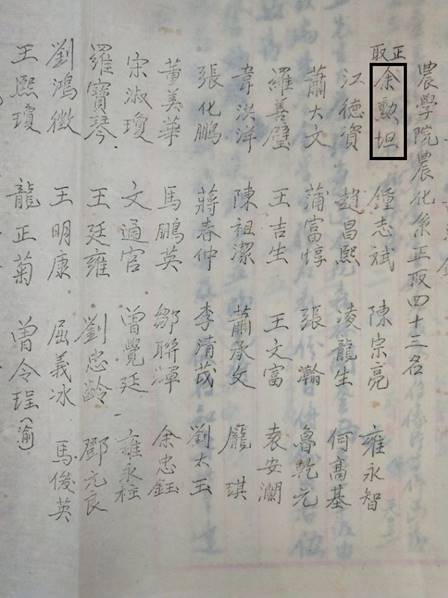 農學院農化系正取四十三名
正取
余勲坦 鍾志斌 陳宗亮 雍永智
江德資 趙昌熙 凌龍生 何高基
蕭大文 蒲富惇 張瀚 魯乾元
羅善璧 王吉生 王文富 袁安瀾
韋洪洋 陳祖潔 蕭承文 龐琪
張化鵬 蔣春仲 李清茂 劉太玉
董美華 馬鵬英 鄒聯渾 余忠鈺
宋淑瓊 文通官 曾覺廷 雍永柱
羅寶琴 王廷雍 劉忠齡 鄧元良
劉鴻徵 王明康 屈義冰 馬俊英
王熙瓊 龍正菊 曾令珵（渝）